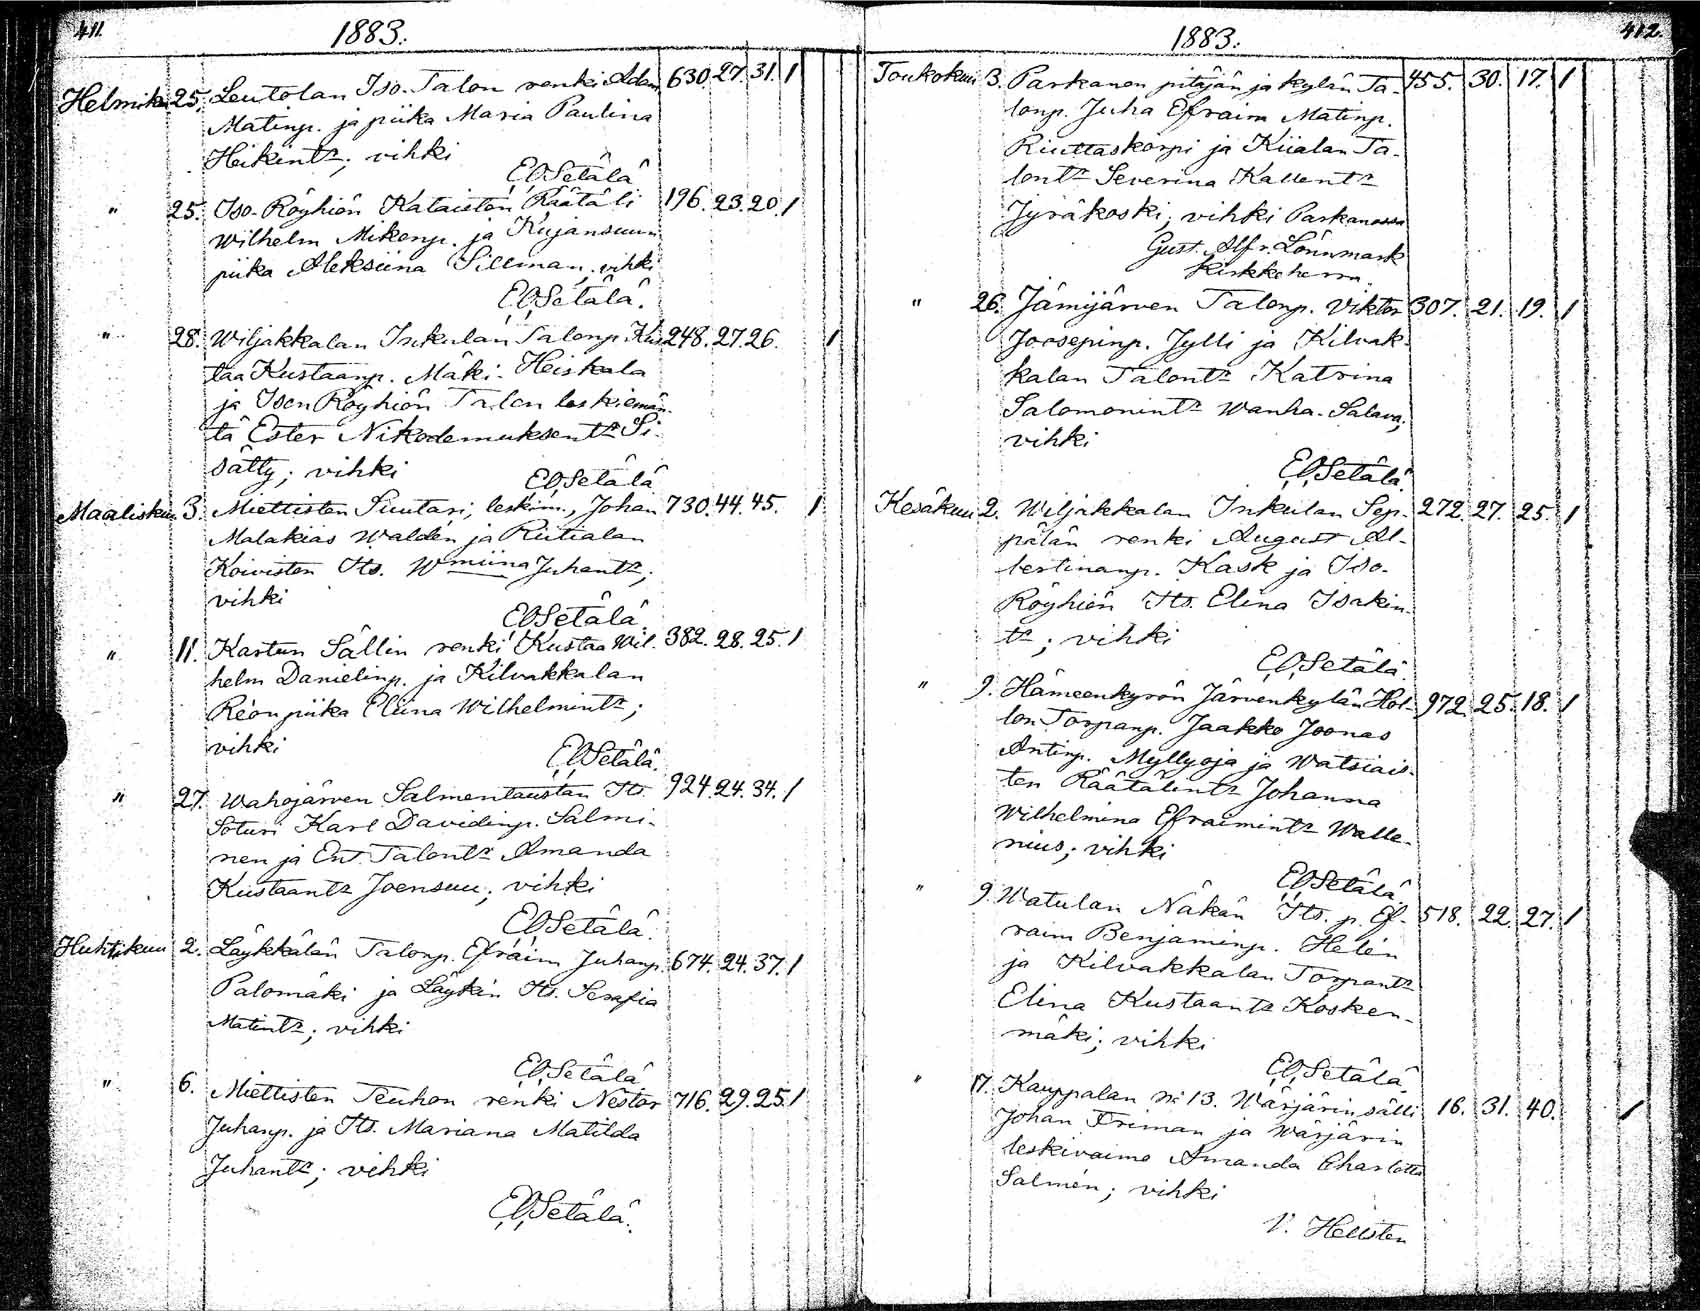 411.
1883.
Helmik. 25. Leutolan Iso-Talon renki Adam 630. 27. 31. 1
Matinp. ja piika Maria Paulina
Heikint:r; vihki
EOSetälä
" 25. Iso-Röyhiön Kataiston Räätäli 196. 23. 20. 1
Wilhelm Mikonp. ja Kujansuun
piika Aleksiina Sillman; vihki
EOSetälä.
" 28. Wiljakkalan Inkulan Talonp. Kus 248. 27. 26. 1
taa Kustaanp. Mäki-Heiskala
ja Ison Röyhiön Talon leskiemän-
tä Ester Nikodemuksent:r Si-
sätty; vihki
EOSetälä
Maaliskuu 3. Miettisten Suutari, leskim., Johan 730. 44. 45. 1
Malakias Waldén ja Riitialan
Koiviston Its. Wmiina Juhant:r;
vihki
EOSetälä.
" 11. Kartun Sällin renki Kustaa Wil- 382. 28. 25. 1
helm Danielinp. ja Kilvakkalan
Réon piika Eliina Wilhelmint:r;
vihki
EOSetälä.
" 27. Wahojärven Salmentaustan Its. 924. 24. 34. 1
Soturi Karl Davidinp. Salmi-
nen ja Ent. Talont:r Amanda
Kustaant:r Joensuu; vihki
EOSetälä.
Huhtikuu 2. Läykkälän Talonp. Efraim Juhanp. 674. 24. 37. 1
Palomäki ja Läykin Its. Serafia
Matint:r; vihki
EOSetälä
" 6. Miettisten Teuhon renki Nestor 716. 29. 25. 1
Juhanp. ja Its. Mariana Matilda
Juhant:r; vihki
EOSetälä.
412.
1883.
Toukokuu 3. Parkanon pitäjän ja kylän Ta- 455. 30. 17. 1
lonp. Juha Efraim Matinp.
Riuttaskorpi ja Kiialan Ta-
lont:r Severina Kallent:r
Jyräkoski; vihki Parkanossa
Gust. Alfr. Lönnmark
Kirkkoherra.
" 26. Jämijärven Talonp. Viktor 307. 21. 19. 1
Joosepinp. Jylli ja Kilvak-
kalan Talont:r Katrina
Salomonint:r Wanha-Salava;
vihki
EOSetälä.
Kesäkuu 2. Wiljakkalan Inkulan Sep- 272. 27. 25. 1
pälän renki August Al-
bertinanp. Kask ja Iso-
Röyhiön Its. Elina Isakin-
t:r; vihki
EOSetälä.
" 9. Hämeenkyrön Järvenkylän Hol- 972. 25. 18. 1
lon Torpanp. Jaakko Joonas
Antinp. Myllyoja ja Watsiais-
ten Räätälint:r Johanna
Wilhelmina Efraimint:r Walle-
nius; vihki
EOSetälä.
" 9. Watulan Näkän Its. p. Ef- 518. 22. 27. 1
raim Benjaminp. Helén
ja Kilvakkalan Torpant:r
Elina Kustaant:r Kosken-
mäki; vihki
EOSetälä.
" 17. Kauppalan N:o 13. Wärjärinsälli 16. 31. 40. 1
Johan Friman ja Wärjärin
leskivaimo Amanda Charlotta
Salmén; vihki
V. Hellsten